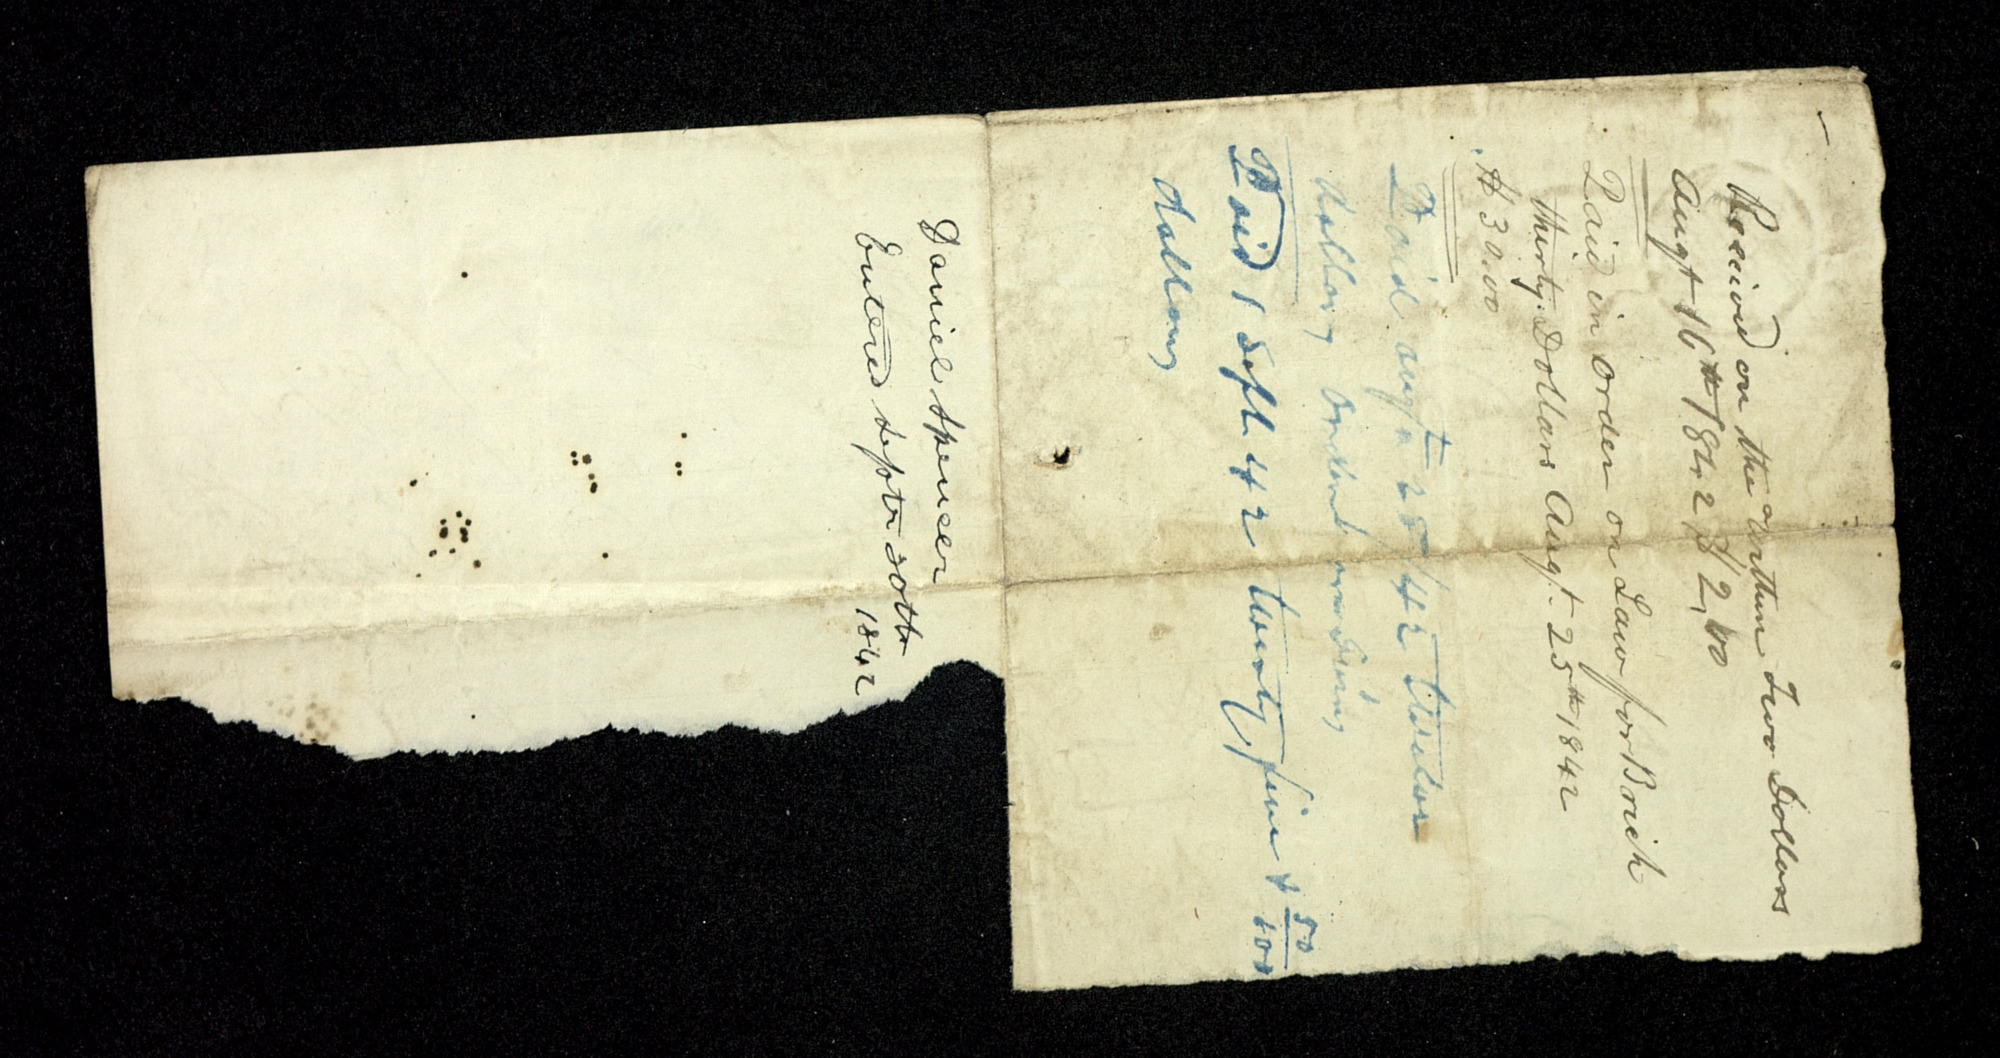 Received on the Written Two Dollars
Augt 16th 1842 $ 2,00
Paid in order on Law for Brick
thirty Dollars Augt. 25th 1842
$ 30.00
Paid augt 25 / 42 twelve
dollars
Paid 1 Sept. 42 twenty five & 50/100
dollars
Daniel Spencer
Entered Septr 20th 1842